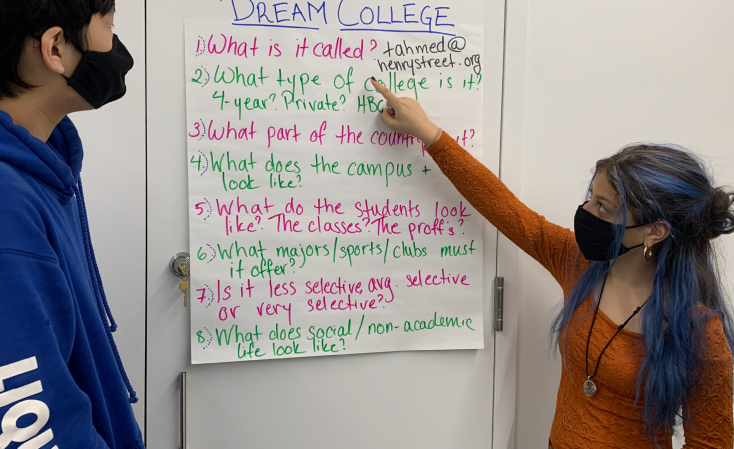 DREAM COLLEGE
1) What is it called? tahmed@
henrystreet.org
2) What type of college is it?
4-year? Private? HBC
3) What part of the country it?
4) What does the campus +
look like?
5) What do the students look
like? The classes? The proff's?
6) What majors/sports/clubs must
it offer?
7) Is it less selective, avg. selective
or very selective?
8) What does social/non-academic
life look like?